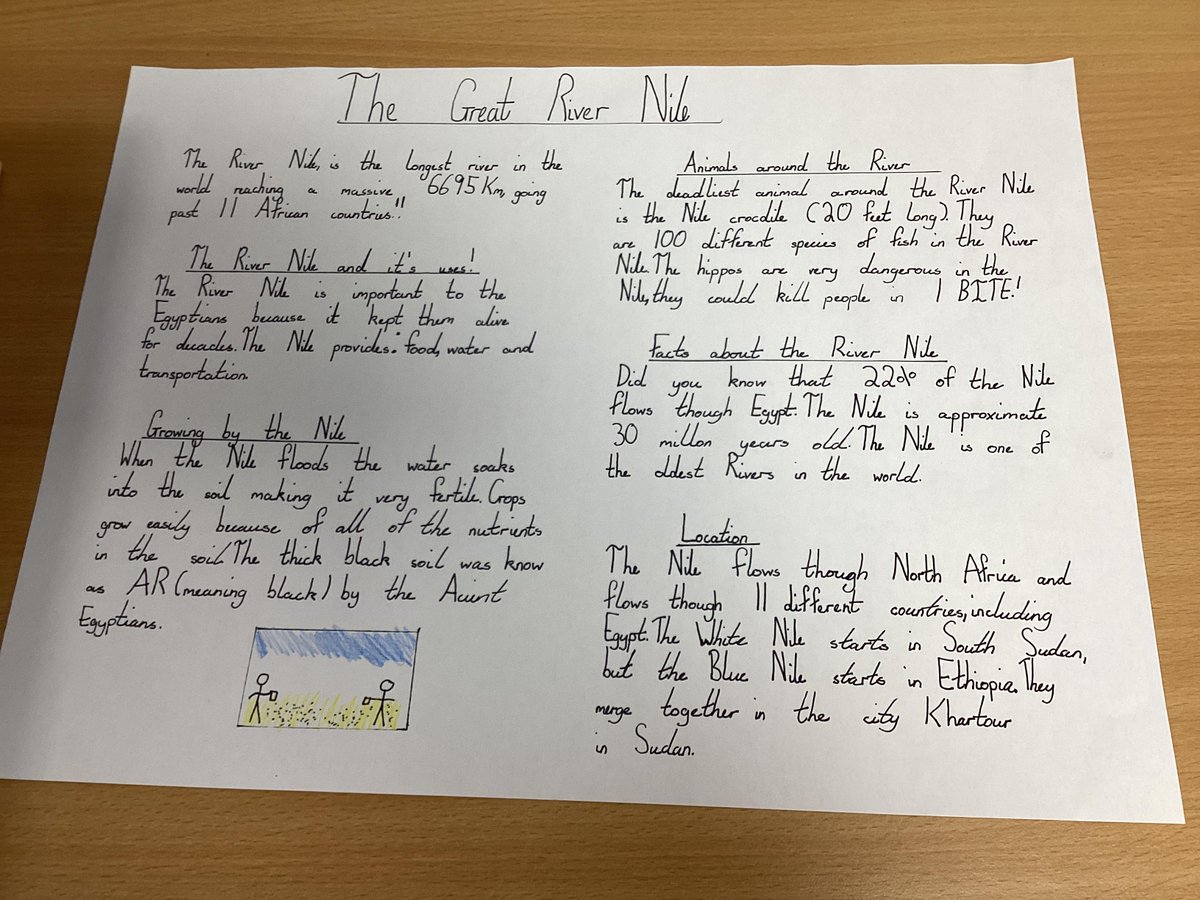 The Great River Nile
The River Nile, is the longest river in the
world reaching a massive 6695 Km, going
past 11 African countries!!
The River Nile and it's uses!
The River Nile is important to the
Egyptians because it kept them alive
for decades. The Nile provides: food, water and
transportation.
Growing by the Nile
When the Nile floods the water soaks
into the soil making it very fertile. Crops
grow easily because of all of the nutrients
in the soil. The thick black soil was know
as AR (meaning black) by the Aciint
Egyptians.
Animals around the River
The deadliest animal around the River Nile
is the Nile crocdile (20 feet long). They
are 100 different species of fish in the River
Nile. The hippos are very dangerous in the
Nile, they could kill people in 1 BITE!
Facts about the River Nile
Did you know that 22% of the Nile
flows though Egypt. The Nile is approximate
30 millon years old. The Nile is one of
the oldest Rivers in the world.
Location
The Nile flows though North Africa and
flows though 11 different countries, including
Egypt. The White Nile starts in South Sudan,
but the Blue Nile starts in Ethiopia. They
merge together in the city Khartour
in Sudan.